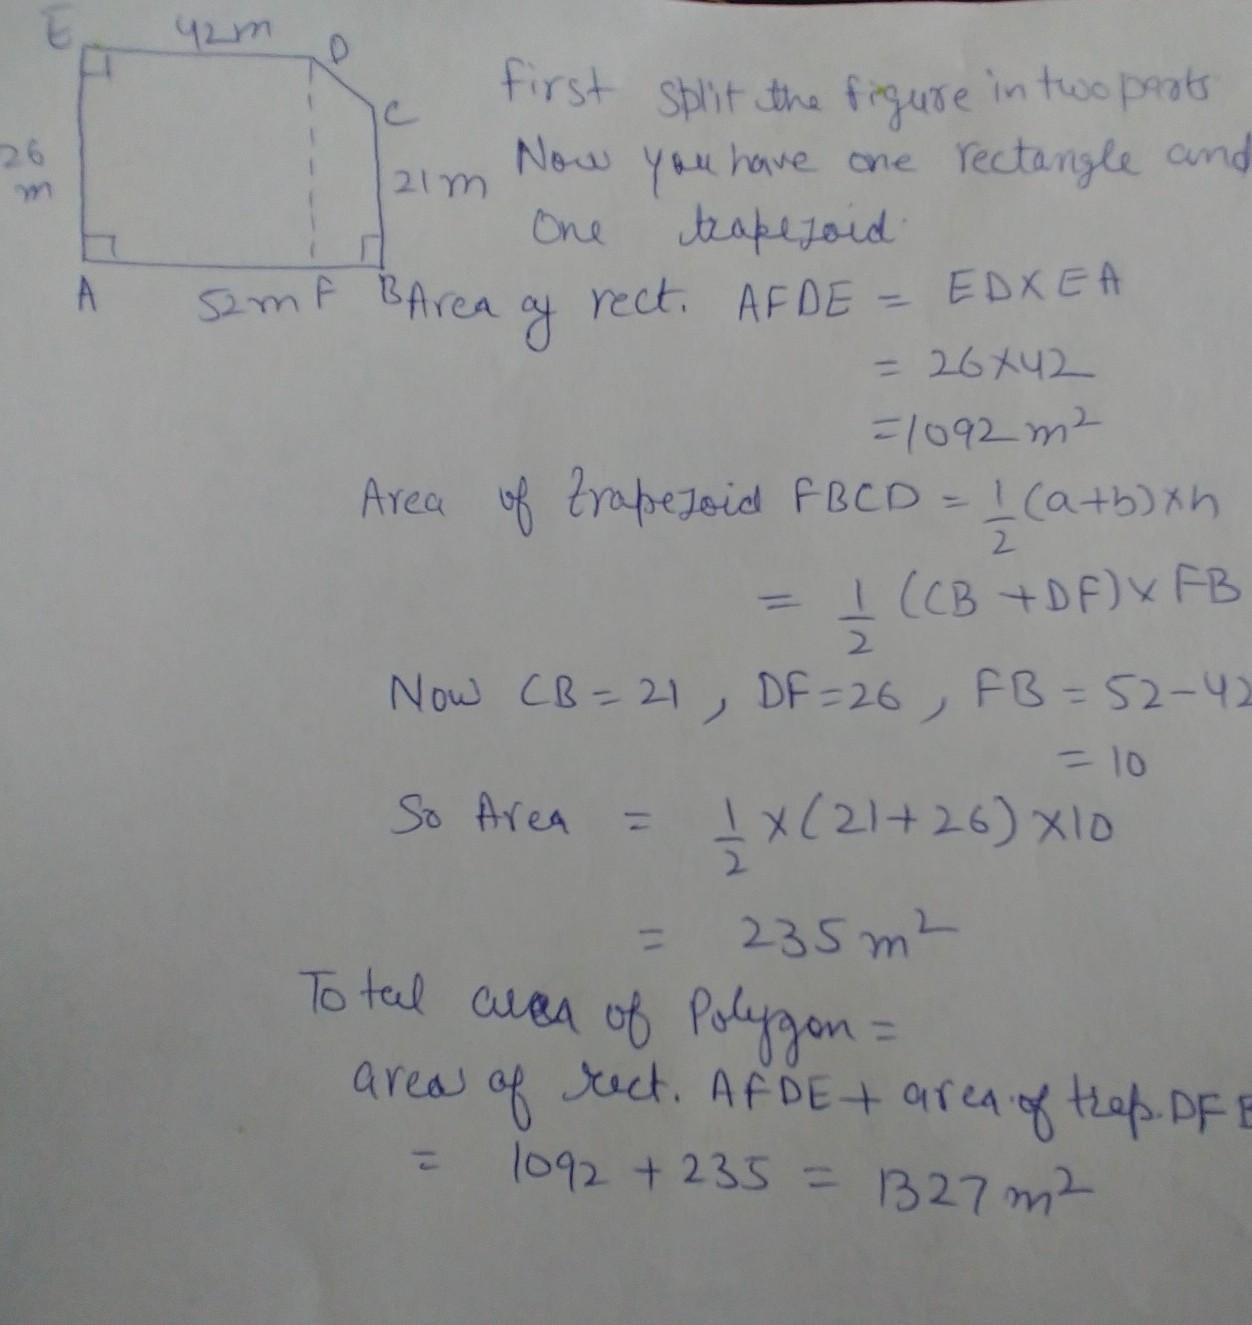 E 42m D
First split the figure in two parts
C
26
m
21m
Now you have one rectangle and
One trapezoid.
A 52m F B
Area of rect. AFDE = ED X EA
= 26 X 42
= 1092 m²
Area of trapezoid FBCD = 1/2 (a+b) x h
= 1/2 (CB + DF) x FB
Now CB = 21 , DF = 26 , FB = 52 - 42
= 10
So Area = 1/2 x (21 + 26) x 10
= 235 m²
Total area of Polygon =
area of rect. AFDE + area of trap. DF
= 1092 + 235 = 1327 m²